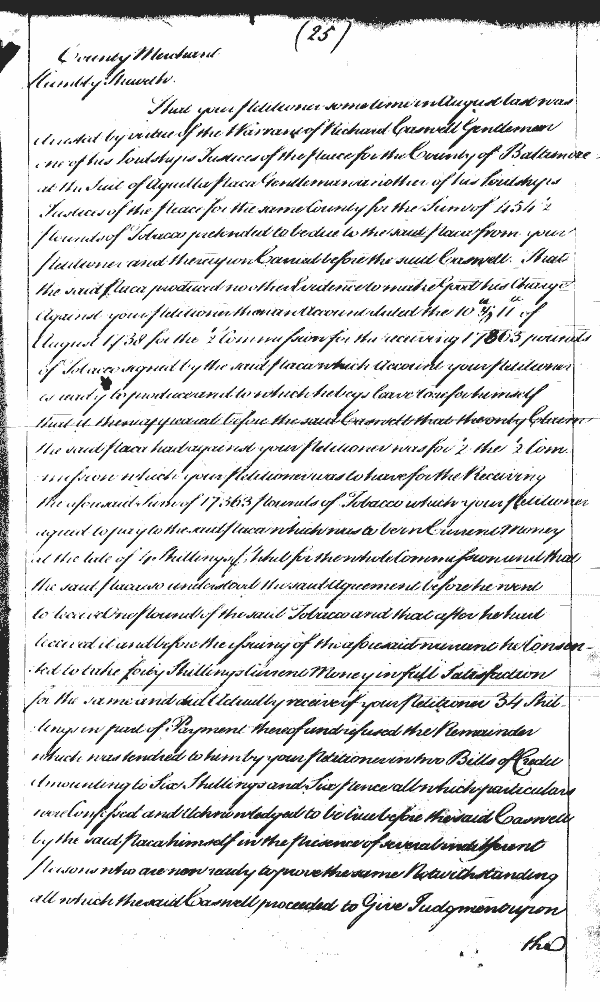 (25)
County Merchant
Humbly Sheweth.
That your Petitioner sometime in August last was
Arrested by virtue of the Warrant of Richard Caswell Gentleman
one of his Lordships Justices of the peace for the County of Baltimore
at the Suit of Aquilla Paca Gentleman another of his Lordships
Justices of the Peace for the same County for the Sum of 454 ½
Pounds of Tobacco pretended to be due to the said Paca from your
Petitioner and thereupon Carried before the said Caswell. That
the said Paca produced no other Evidence to make Good his Charge
Against your Petitioner than an Account dated the 10th 11th of
August 1738 for the ½ Commission for the receiving 17363 pounds
of Tobacco signed by the said Paca which Account your Petitioner
is ready to produce and to which he begs leave to refer himself
that it then appeared before the said Caswell that the only Claim
the said Paca had against your Petitioner was for ½ the ½ Com-
mission which your Petitioner was to have for the Receiving
the aforesaid Sum of 17363 Pounds of Tobacco which your Petitioner
agreed to pay to the said Paca which was to be in Current Money
at the Rate of 4 Shillings for the whole Commission and that
the said Paca so understood the said Agreement before he went
to receive One Pound of the said Tobacco and that after he had
received it and before the issuing of the aforesaid warrant he Consen-
ted to take forty Shillings Current Money in full Satisfaction
for the same and did Actually receive of your Petitioner 34 Shil-
lings in part of Payment thereof and refused the Remainder
which was tendred to him by your Petitioner in two Bills of Credit
Amounting to Six Shillings and Six pence all which particulars
were Confessed and Acknowledged to be true before the said Caswell
by the said Paca himself in the Presence of several indifferent
Persons who are now ready to prove the same Notwithstanding
all which the said Caswell proceeded to Give Judgment upon
the